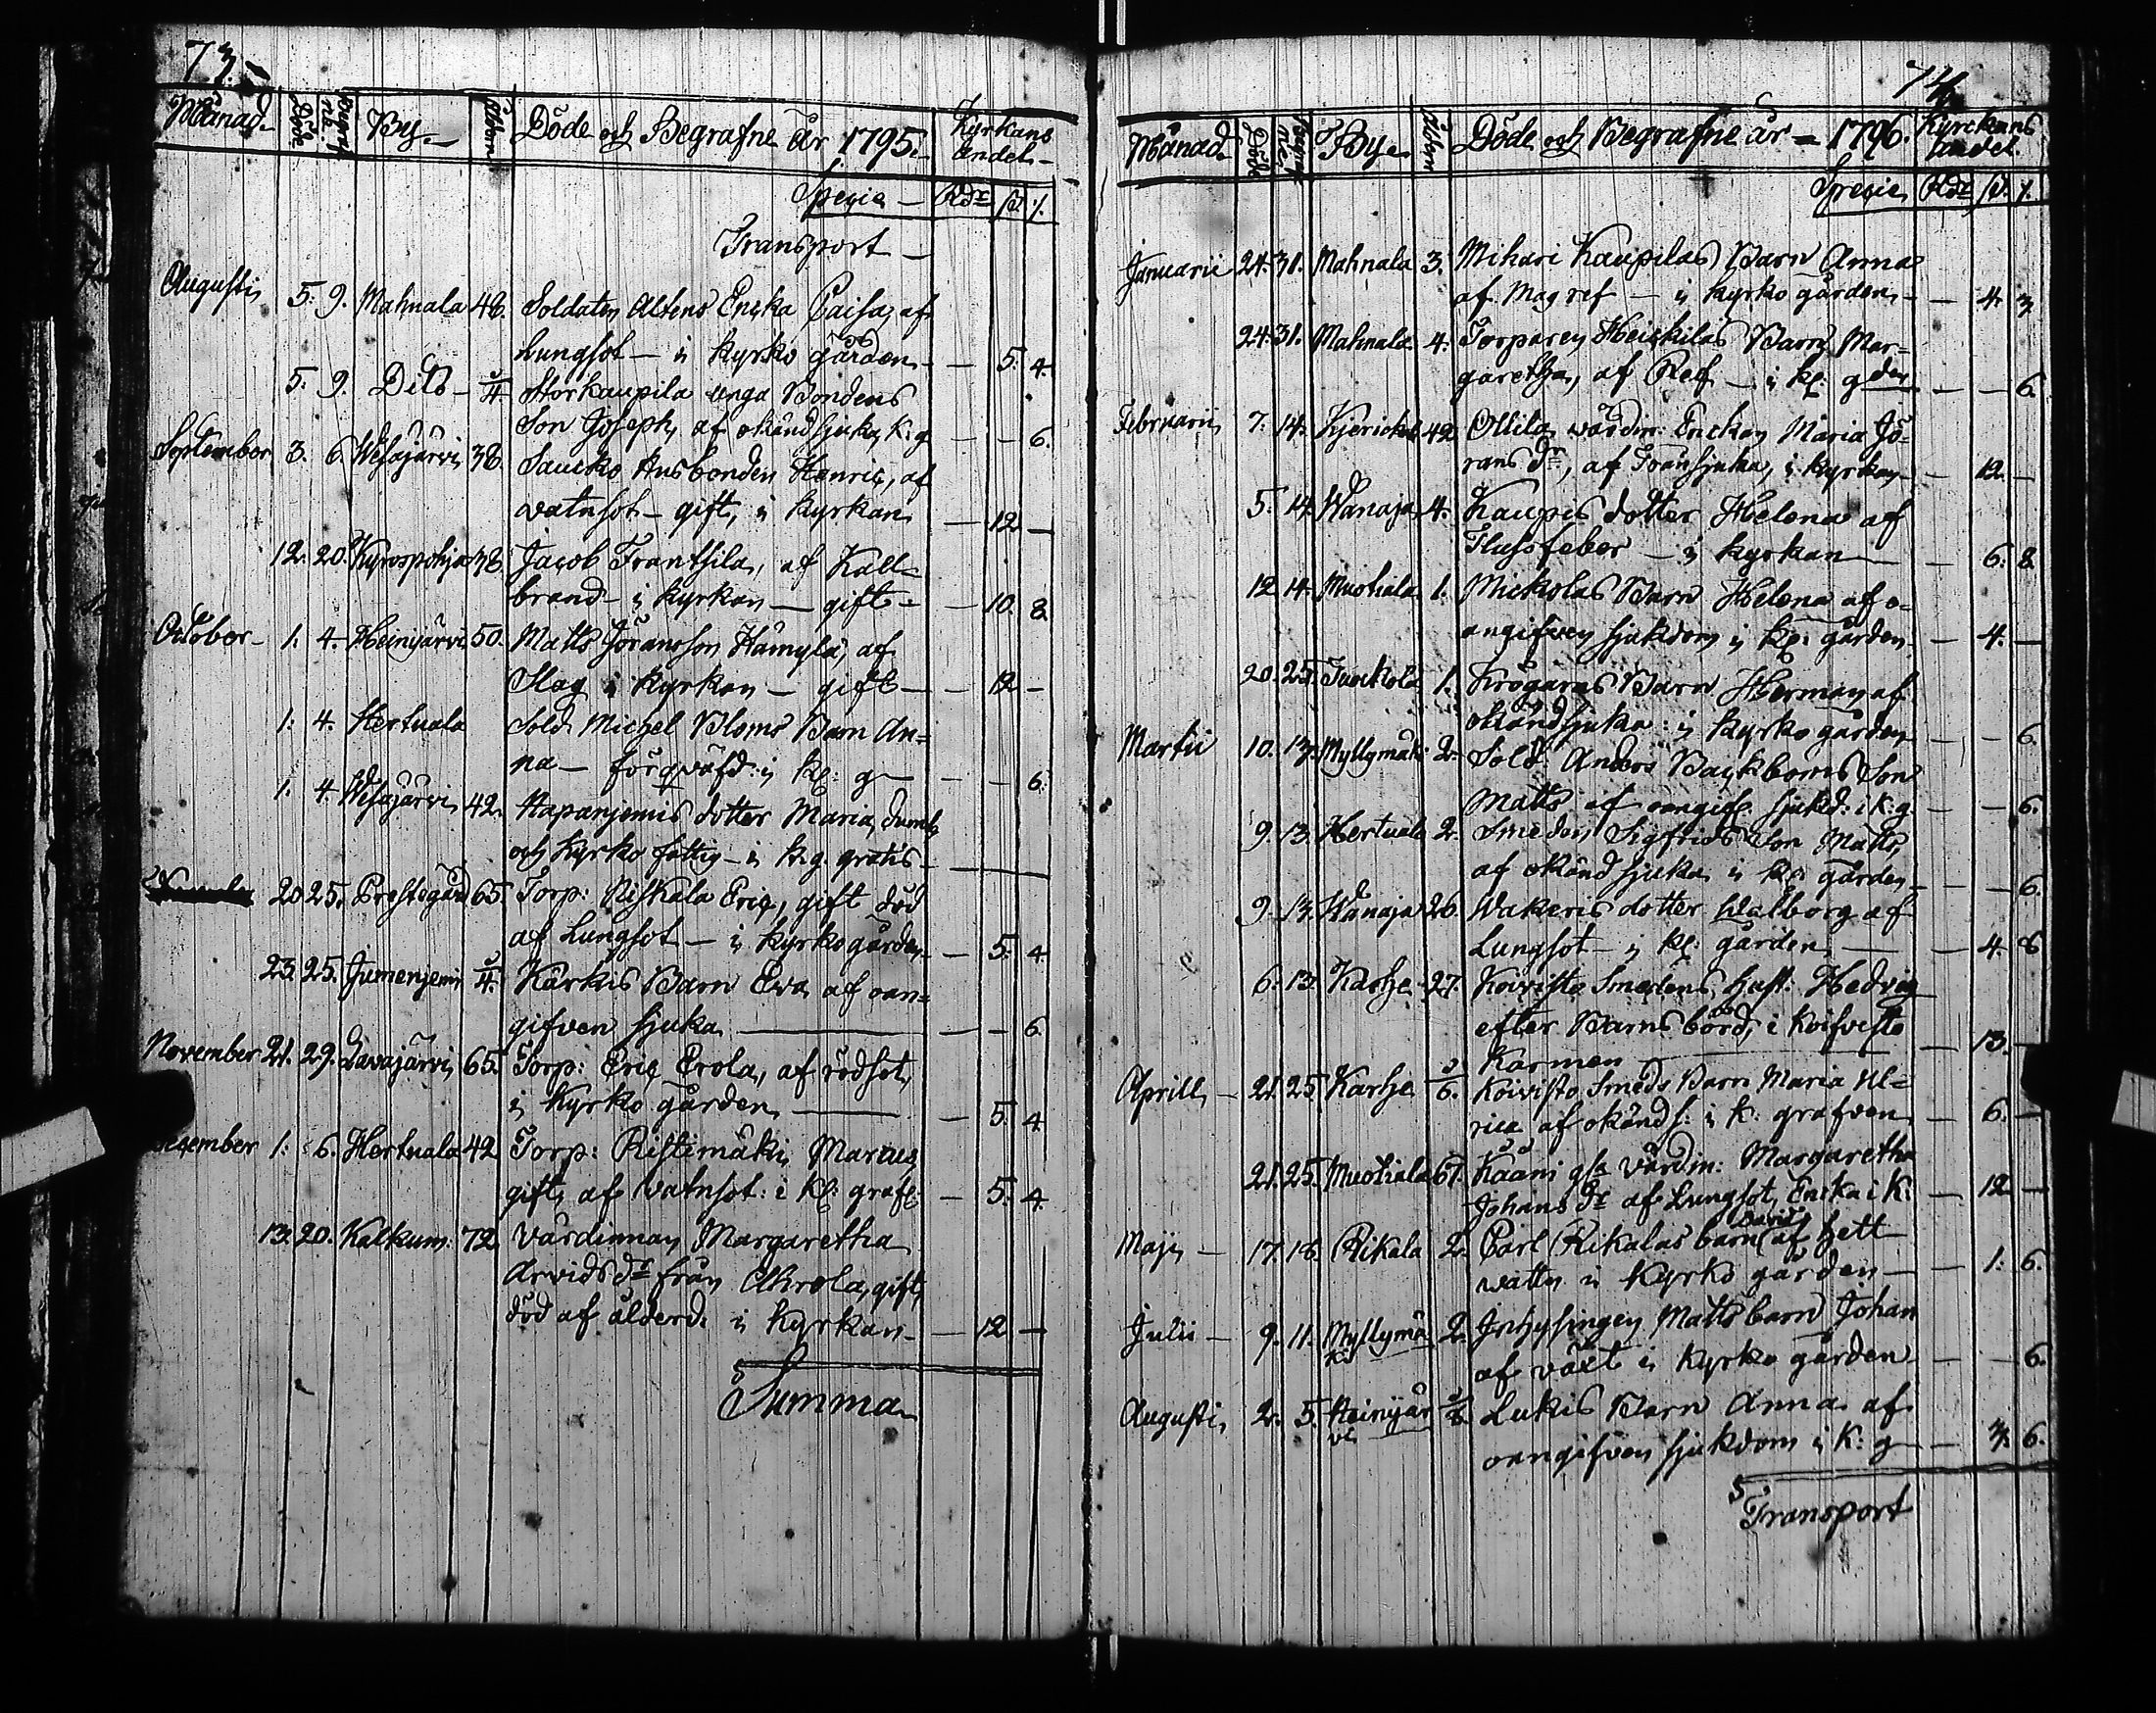 73.
Månad Döde Begrafne By Ålder Döde och Begrafne År 1795. Kyrkans andel
Specie Rdr ß
Transport
Augusti 5. 9. Mahnala 48. Soldaten Altens Encka Caisa, af
Lungsot i kyrko gården 5. 4.
5. 9. Dito Storkaupila unga Bondens
Son Joseph, af okänd sjuka, k: g 6.
September 3. 6. Wesajärvi 38. Saucko Husbonden Henric, af
watusot gift, i kyrkan 12
12. 20. Kyrospohja 38. Jacob Frantsila, af Kall=
brand i kyrkan gift 10. 8
October 1. 4. Heinijärvi 50. Matts Göransson Hämylä, af
Slag i kyrkan gift 12
1. 4. Hertuala Sold. Michel Bloms Barn An=
na förqväfd: i k: g 6.
1. 4. Wesajärvi 42. Hapaniemis dotter Maria, dumb
och kyrko fattig i k. g. gratis
20 25. Prestegård 65. Torp: Riskala Eric, gift död
af Lungsot i kyrko gården 5. 4
23. 25. Jumenjemi Kärkis Barn Eva af oan=
gifven sjuka 6
November 21. 29. Lavajärvi 65. Torp: Eric Erola, af rödsot,
i kyrko gården 5. 4.
December 1. 6. Hertuala 42 Torp: Ristimäki Marcus
gift, af vatnsot: i k: graf: 5. 4.
13. 20. Kalkum: 72. Värdinnan Margaretha
Arvids dr från Ahrola, gift,
död af ålderd. i kyrkan 12
Summa
74.
Månad Döde Begrafne By Ålder Döde och Begrafne år 1796. Kyrckans andel.
Specie Rdr ß
Januarii 24. 31. Mahnala 3. Mihari Kaupilas Barn Anna
af Magref i kyrko gården 4. 3
24. 31. Mahnala 4. Torparen Heickilas Barn Mar=
garetha, af Ref i k: gden 6.
Februarii 7. 14. 42 Ollila värdin: Enckan Maria Jö=
rans dr, af Trånsjuka, i kyrkan 12
5. 14. Wanaja 4. Kaupis dotter Helena af
Flussfeber i kyrkan 6. 8
12 14. Muotiala 1. Mickolas Barn Helena af o=
angifven sjukdom i k: gården 4.
20. 25. 1. Krögares Barn Herman af
okänd sjuka: i kyrko gården 6.
Martii 10. 13. Myllymäki 2. Sold. Anders Backboms Son
Matts af oangif. sjukd: i k: g 6.
9. 13. Hertuala 2. Smeden Sigfrids Son Matts,
af okänd sjuka i k: gården 6.
9. 13. Wanaja 26. Wakeris dotter Walborg af
Lungsot i k: gården 4. 8
6. 13. Karhe 27. Koivisto Smedens hust: Hedvig
efter Barnsbörd, i Koifvisto
Karmen 13.
Aprill 21. 25. Karhe Koivisto Smeds Barn Maria Ul=
rica af okänd s: i k: grafven 6.
21. 25. Muotiala 67. Kääni gla Värdin: Margaretha
Johans dr af Lungsot, Encka i K: 12
Maji 17. 18. Rikala 2. Carl Rikalas barn David af hett
vatten i kyrko gården 1. 6.
Julii 9. 11. Myllymä 2. Inhysingen Matts barn Johan
ki af växt i kyrko gården 6.
Augusti 2. 5. Heinijär Lukis Barn Anna af
vi oangifven sjukdom i k: g 3. 6.
Transport